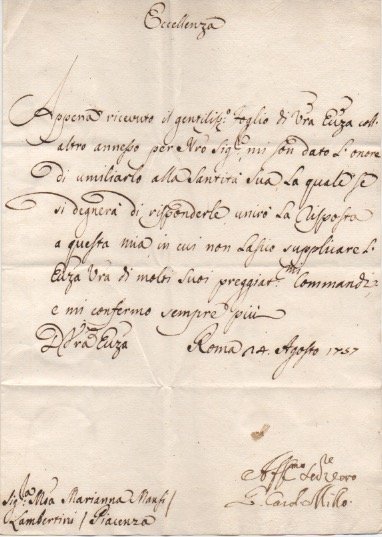 Eccellenza
Appena ricevuto il gentiliss.o foglio di Vra Ecc.za coll'
altro annesso per Nro Sig.re mi son dato l'onore
di umiliarlo alla Santità Sua la quale se
si degnerà di risponderle unirò la risposta
a questa mia in cui non lascio supplicare l'
Ecc.za Vra di molti suoi preggiat.mi Commandi
e mi confermo sempre più
D Vra Ecc.za Roma 24. Agosto 1757
Aff.mo
G. Card. Millo.
Sig.ra Msa Marianna
Lambertini / Piacenza